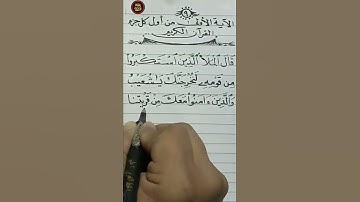 ٩
الآية الأولى من أول كل جزء
القرآن الكريم
قَالَ الْمَلَأُ الَّذِينَ اسْتَكْبَرُوا
مِن قَوْمِهِ لَنُخْرِجَنَّكَ يَشُعَيْبُ
وَالَّذِينَ ءَامَنُوا مَعَكَ مِن قَرْيَتِنَا